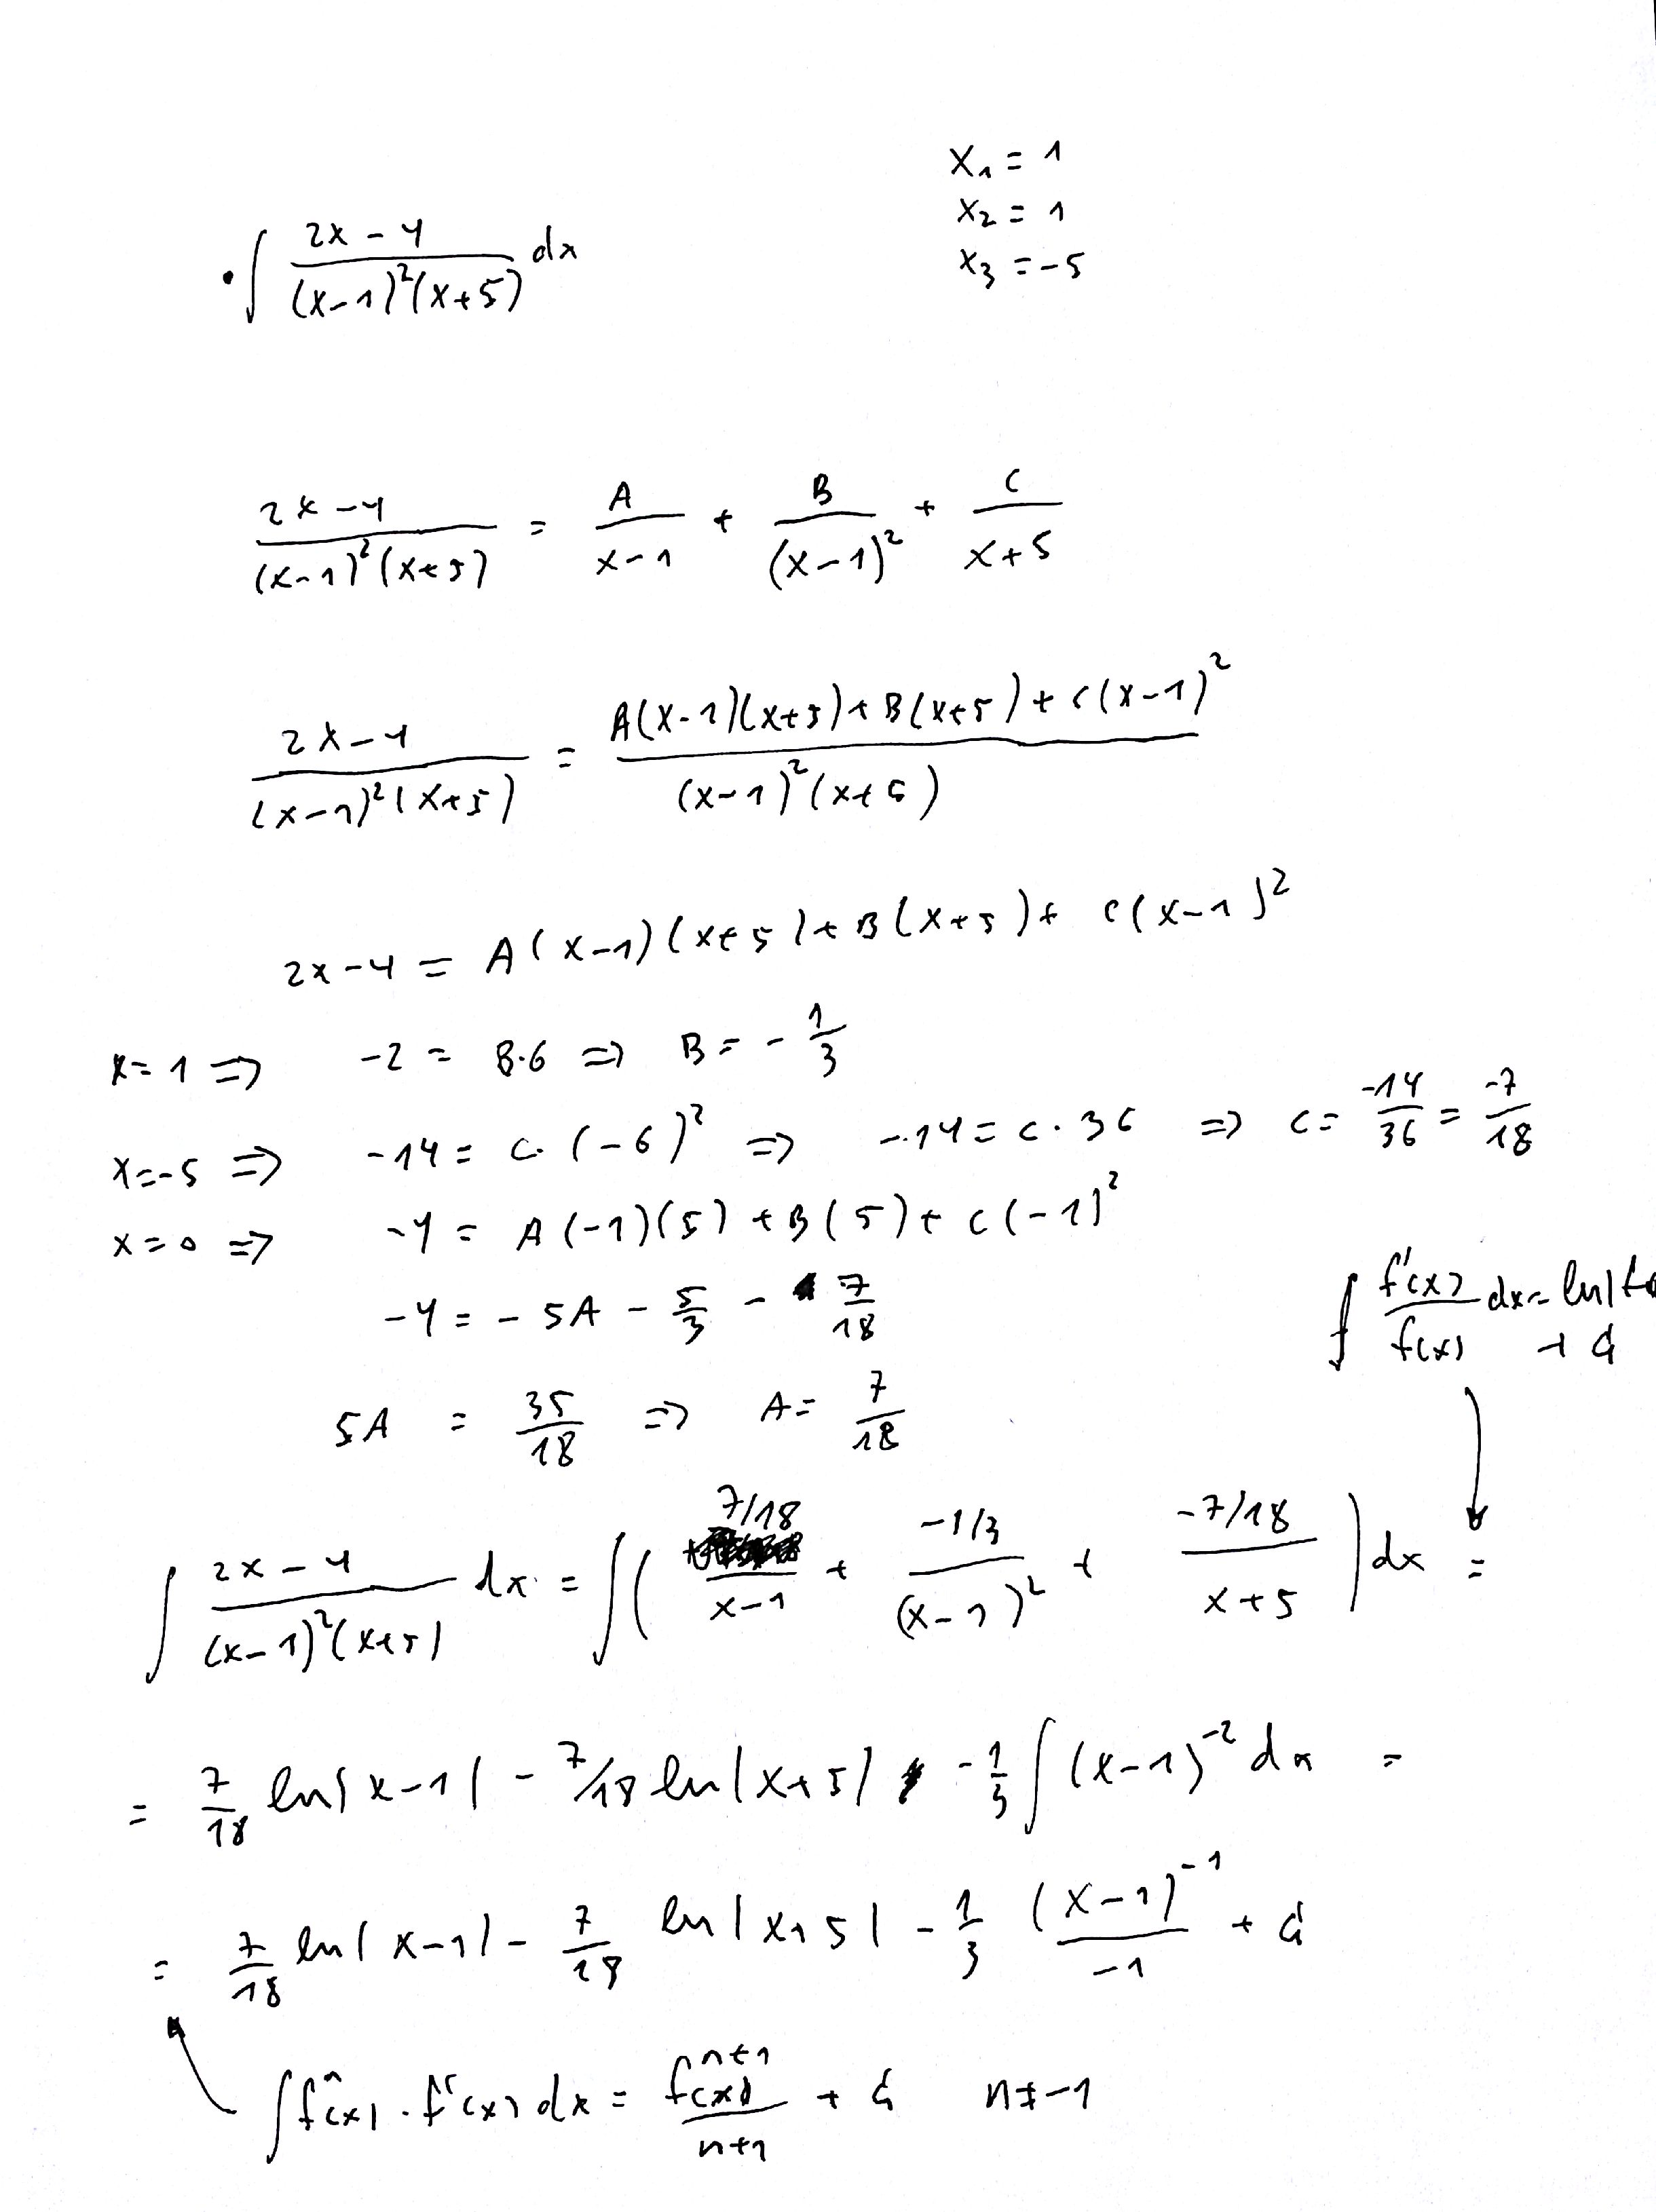 x₁ = 1
x₂ = 1
x₃ = -5
• ∫ (2x - 4)/((x-1)²(x+5)) dx
(2x - 4)/((x-1)²(x+5)) = A/(x-1) + B/(x-1)² + C/(x+5)
(2x - 4)/((x-1)²(x+5)) = (A(x-1)(x+5) + B(x+5) + C(x-1)²)/((x-1)²(x+5))
2x - 4 = A(x-1)(x+5) + B(x+5) + C(x-1)²
x = 1 ⇒ -2 = B·6 ⇒ B = -1/3
x = -5 ⇒ -14 = C·(-6)² ⇒ -14 = C·36 ⇒ C = -14/36 = -7/18
x = 0 ⇒ -4 = A(-1)(5) + B(5) + C(-1)²
-4 = -5A - 5/3 - 7/18
∫ f'(x)/f(x) dx = ln|f
+ C
5A = 35/18 ⇒ A = 7/18
∫ (2x - 4)/((x-1)²(x+5)) dx = ∫ ( (7/18)/(x-1) + (-1/3)/(x-1)² + (-7/18)/(x+5) ) dx =
= 7/18 ln|x-1| - 7/18 ln|x+5| - 1/3 ∫ (x-1)⁻² dx =
= 7/18 ln|x-1| - 7/18 ln|x+5| - 1/3 (x-1)⁻¹/(-1) + C
∫ fⁿ(x)·f'(x) dx = fⁿ⁺¹(x)/(n+1) + C n ≠ -1